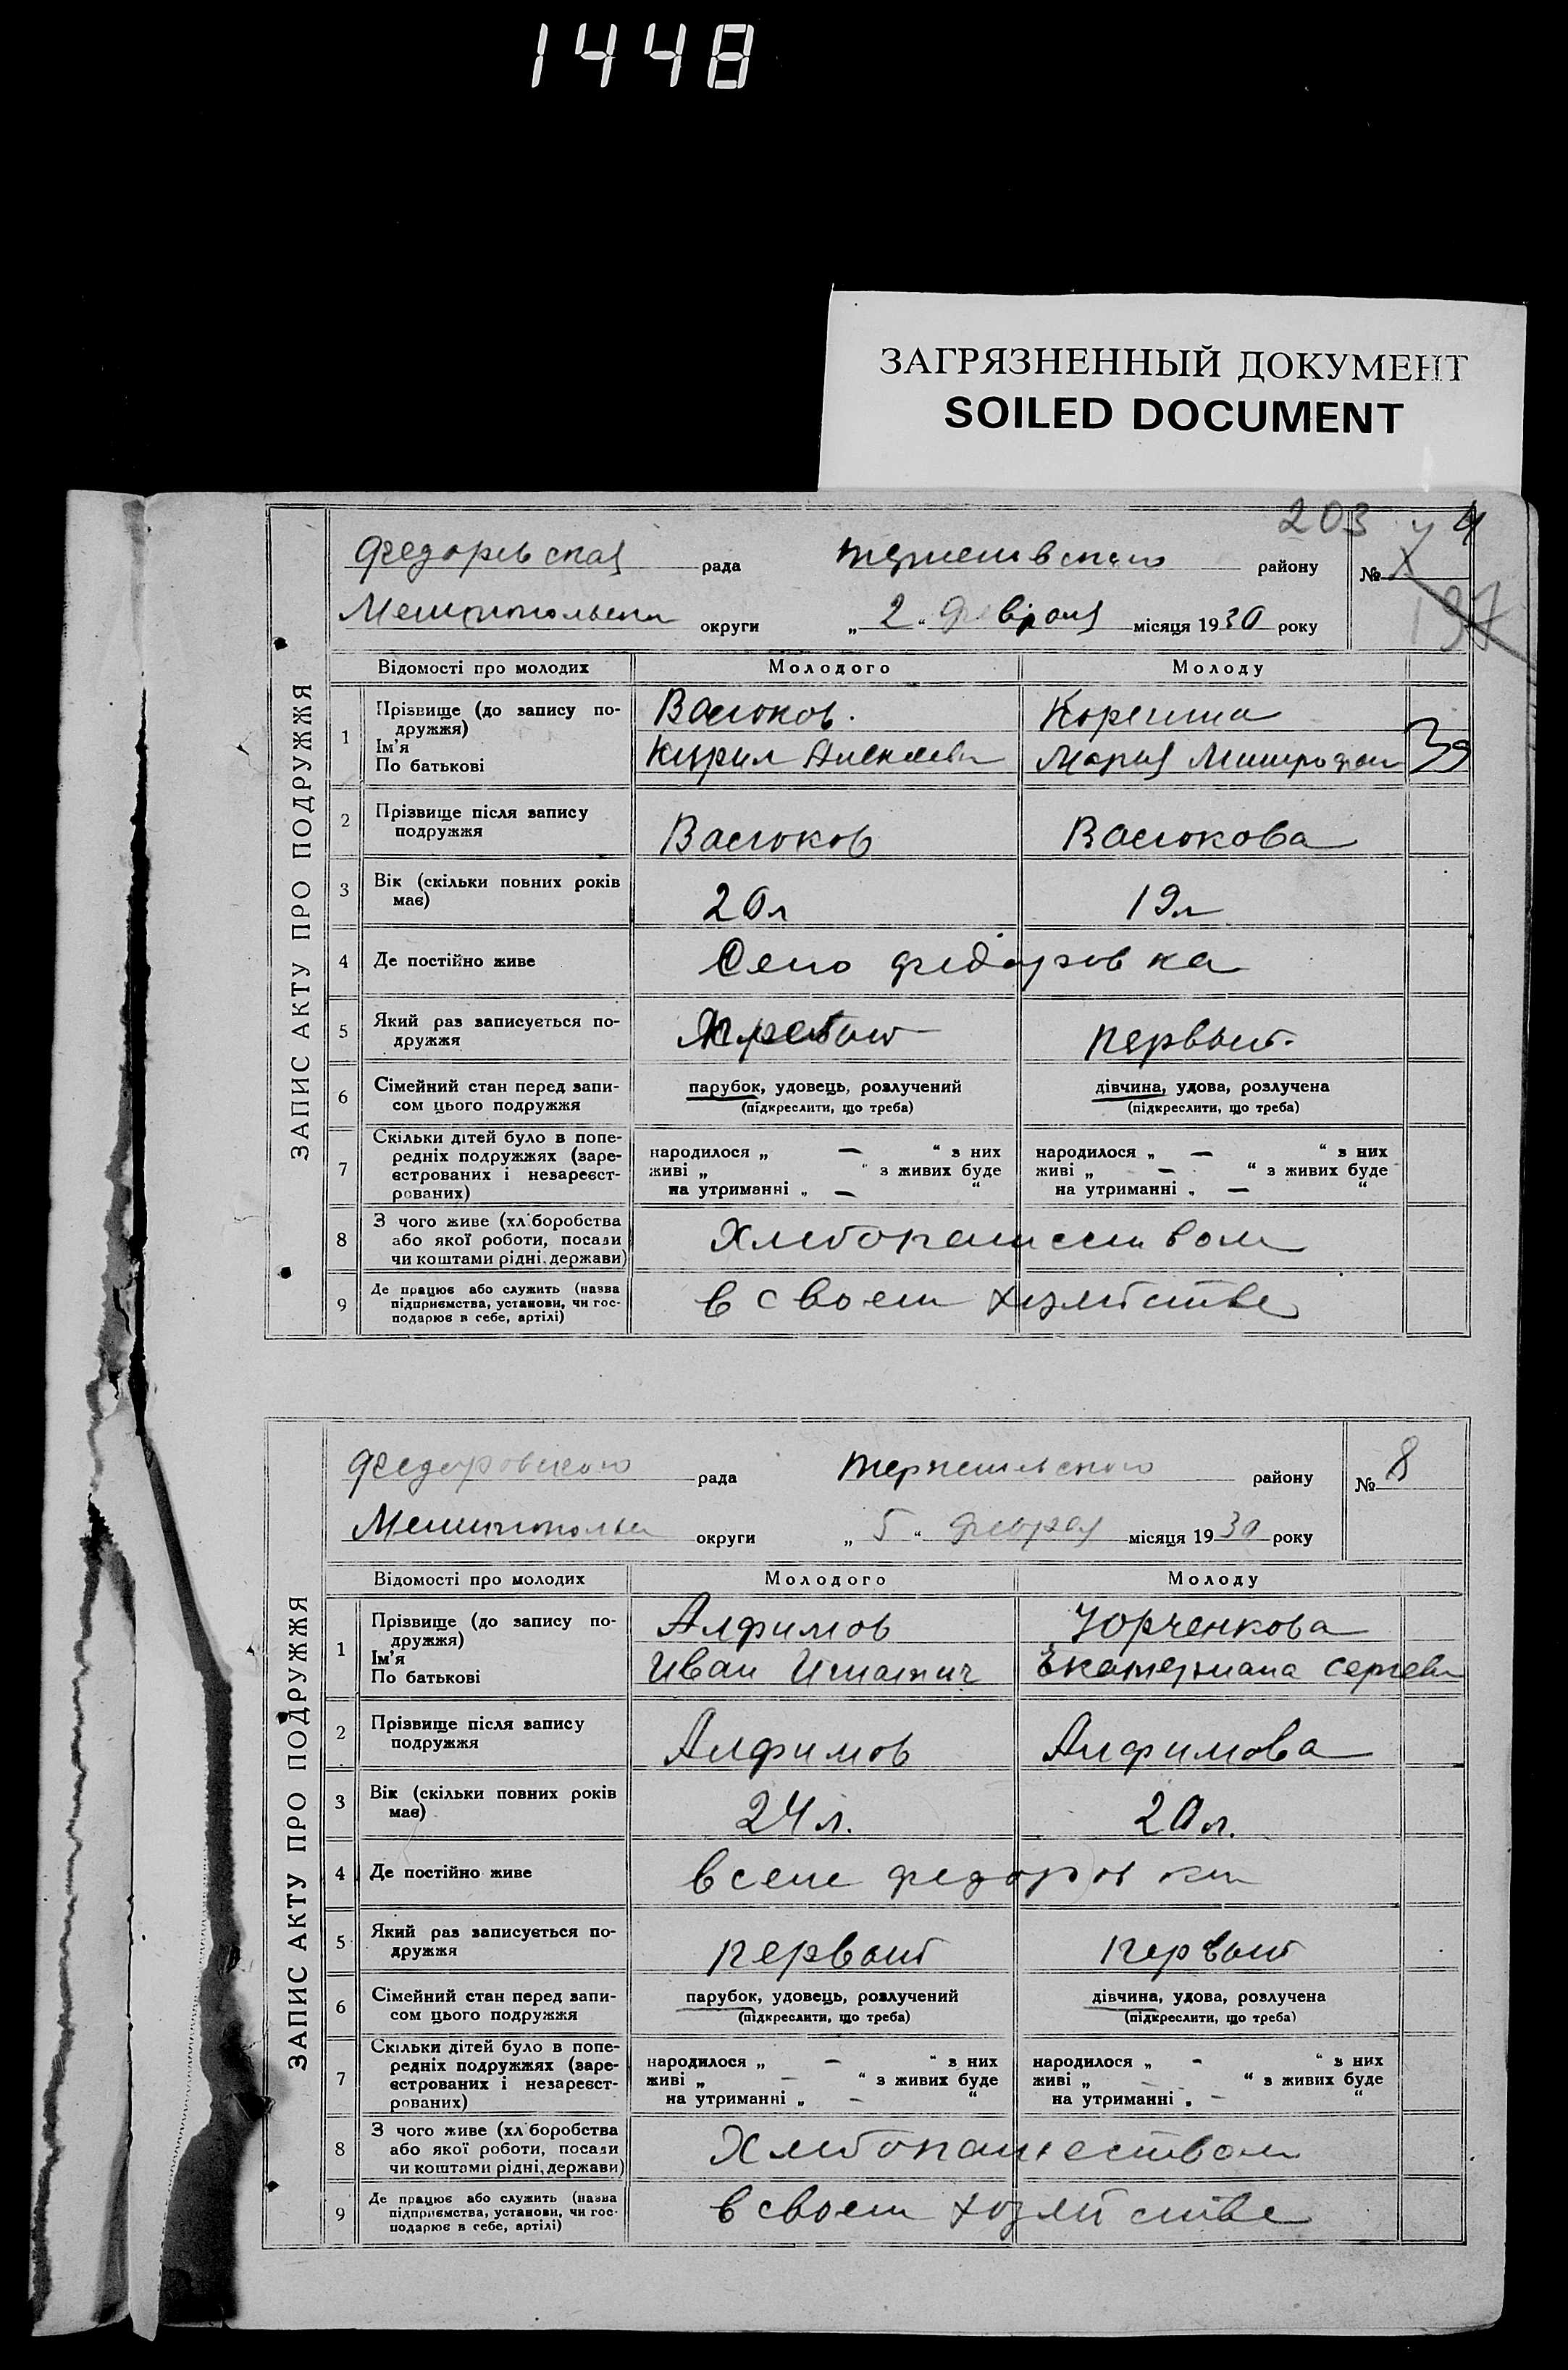 1448
ЗАГРЯЗНЕННЫЙ ДОКУМЕНТ
SOILED DOCUMENT
203
4
ЗАПИС АКТУ ПРО ПОДРУЖЖЯ
рада району №
округи „ 2 “ місяця 1930 року
197
Відомості про молодих Молодого Молоду
1 Прізвище (до запису по-
дружжя)
Ім'я
По батькові
Васюков. Корягина
Кирил Алексееви Мария Митрофан
39
2 Прізвище після запису
подружжя
Васюков Васюкова
3 Вік (скільки повних років
має)
20л 19л
4 Де постійно живе Село федоровка
5 Який раз записується по-
дружжя
первый первый
6 Сімейний стан перед запи-
сом цього подружжя
парубок, удовець, розлучений дівчина, удова, розлучена
(підкреслити, що треба) (підкреслити, що треба)
7 Скільки дітей було в попе-
редніх подружжях (заре-
єстрованих і незареєст-
рованих)
народилося „ — “ з них народилося „ — “ з них
живі „ “ з живих буде живі „ — “ з живих буде
на утриманні „ — “ на утриманні „ — “
8 З чого живе (хліборобства
або якої роботи, посади
чи коштами рідні, держави)
Хлебопашеством
9 Де працює або служить (назва
підприємства, установи, чи гос-
подарює в себе, артілі)
в своем хозяйстве
ЗАПИС АКТУ ПРО ПОДРУЖЖЯ
Федоровского рада району № 8
округи „ 5 “ февраля місяця 1930 року
Відомості про молодих Молодого Молоду
1 Прізвище (до запису по-
дружжя)
Ім'я
По батькові
Алфимов Юрченкова
Иван Игнатич Екатериана Сергеевн
2 Прізвище після запису
подружжя
Алфимов Алфимова
3 Вік (скільки повних років
має)
24л. 20л.
4 Де постійно живе в селе федоровки
5 Який раз записується по-
дружжя
первый первый
6 Сімейний стан перед запи-
сом цього подружжя
парубок, удовець, розлучений дівчина, удова, розлучена
(підкреслити, що треба) (підкреслити, що треба)
7 Скільки дітей було в попе-
редніх подружжях (заре-
єстрованих і незареєст-
рованих)
народилося „ — “ з них народилося „ — “ з них
живі „ — “ з живих буде живі „ — “ з живих буде
на утриманні „ — “ на утриманні „ — “
8 З чого живе (хліборобства
або якої роботи, посади
чи коштами рідні, держави)
Хлебопашеством
9 Де працює або служить (назва
підприємства, установи, чи гос-
подарює в себе, артілі)
в своем хозяйстве